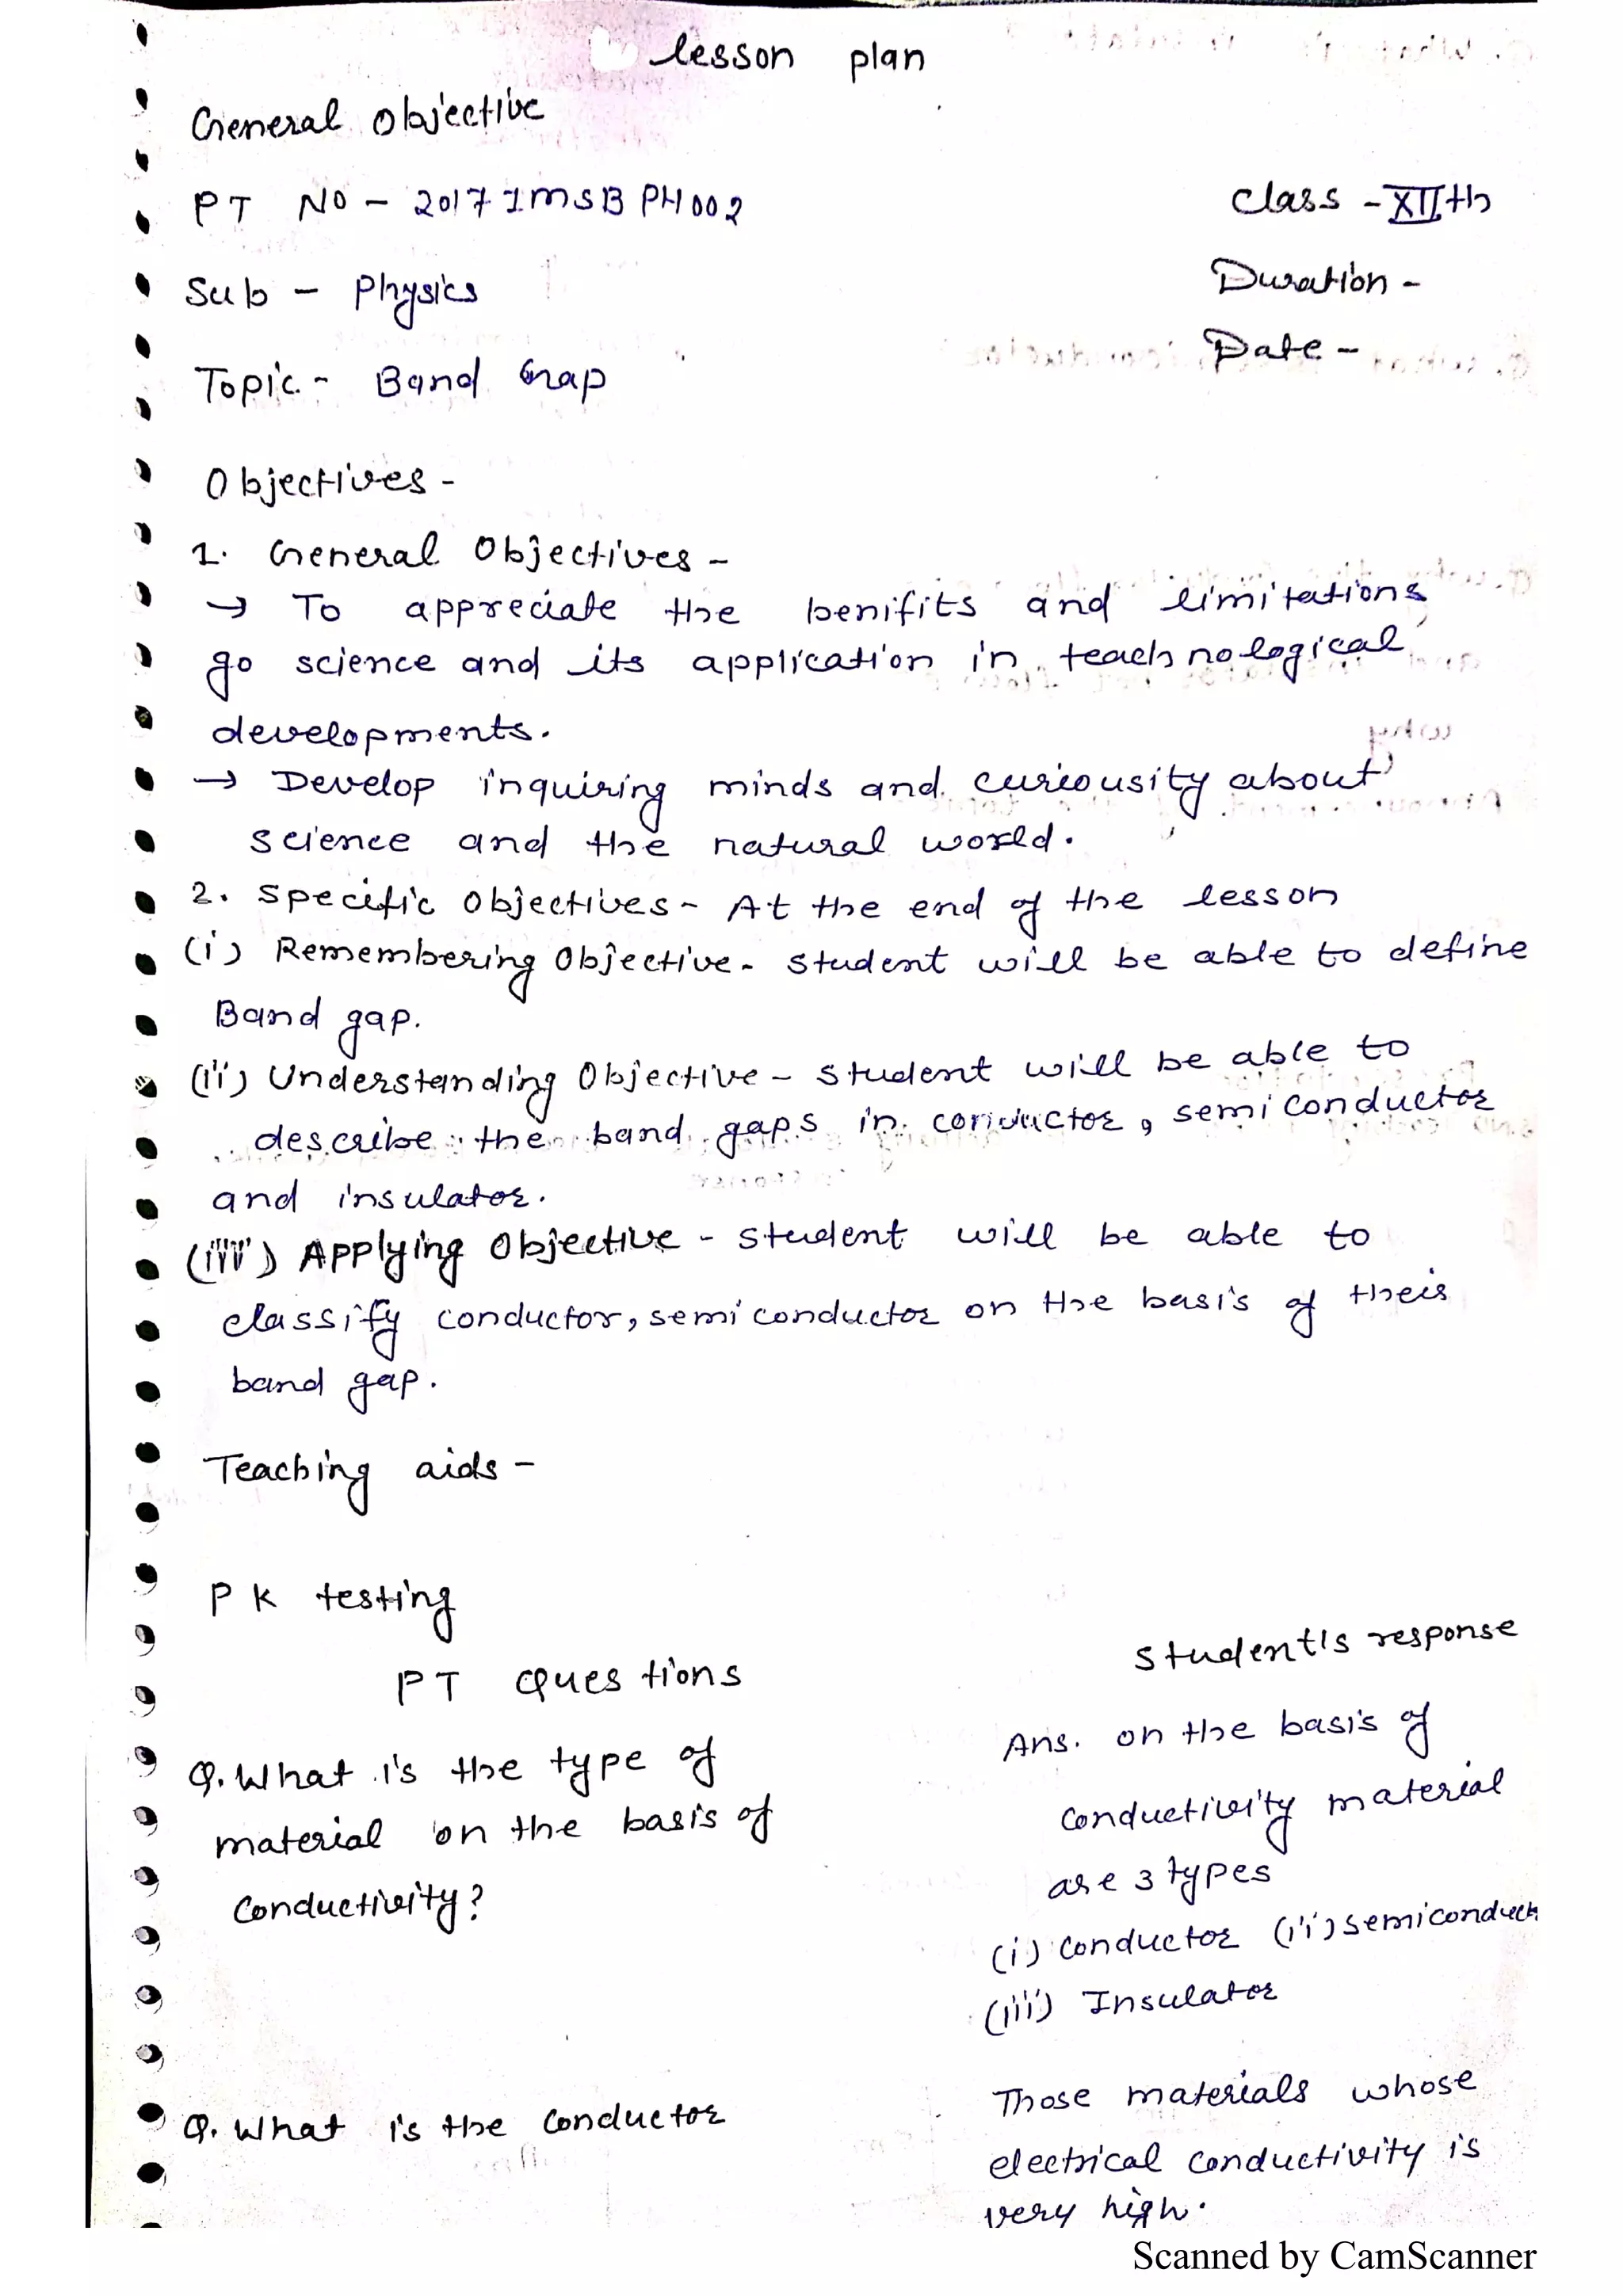 lesson plan
General Objective
PT NO - 2017IMSBPH002
Class - XIIth
Sub - Physics
Duration -
Date -
Topic - Band Gap
Objectives -
1. General Objectives -
→ To appreciate the benifits and limitations
go science and its application in teachnological
developments.
→ Develop inquiring minds and curiousity about
science and the natural world.
2. Specific Objectives - At the end of the lesson
(i) Remembering Objective - student will be able to define
Band gap.
(ii) Understanding Objective - student will be able to
describe the band gaps in conductor, semiconductor
and insulator.
(iii) Applying Objective - student will be able to
classify conductor, semiconductor on the basis of their
band gap.
Teaching aids -
PK testing
PT Questions
Student's response
Q. What is the type of
material on the basis of
Conductivity?
Ans. on the basis of
Conductivity material
are 3 types
(i) Conductor (ii) semiconduct
(iii) Insulator
Q. What is the Conductor
Those materials whose
electrical conductivity is
very high.
Scanned by CamScanner